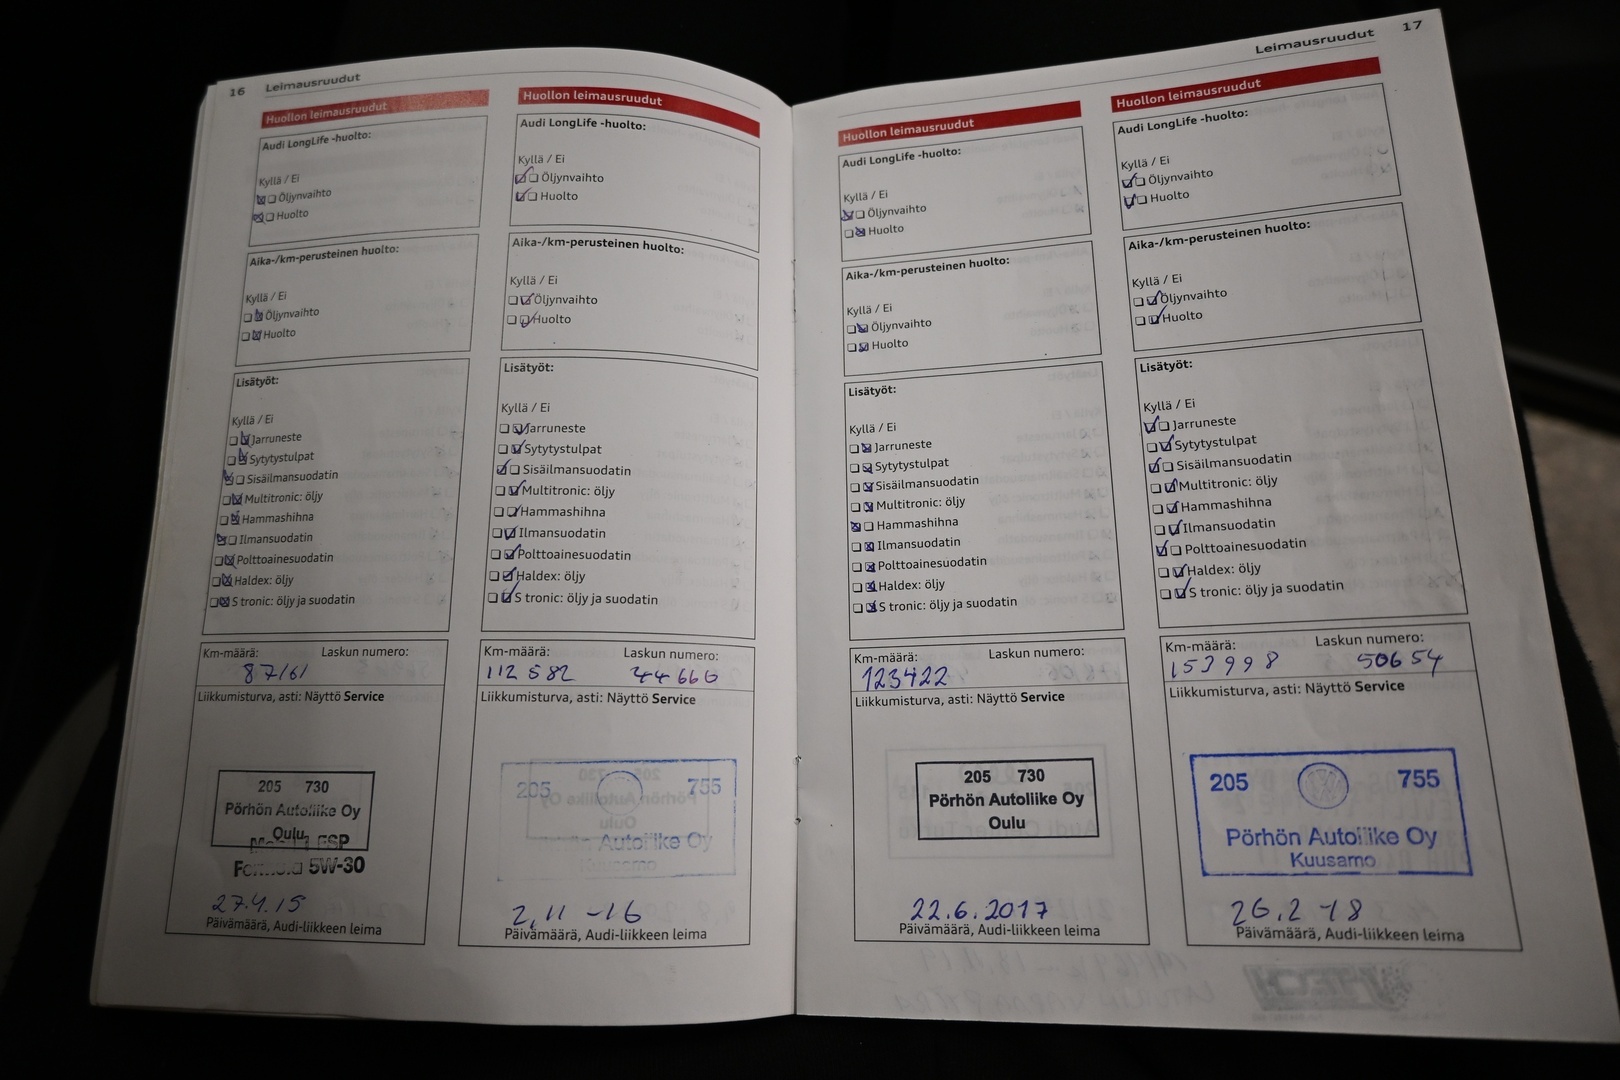 16 Leimausruudut
Huollon leimausruudut
Audi LongLife -huolto:
Kyllä / Ei
Öljynvaihto
Huolto
Aika-/km-perusteinen huolto:
Kyllä / Ei
Öljynvaihto
Huolto
Lisätyöt:
Kyllä / Ei
Jarruneste
Sytytystulpat
Sisäilmansuodatin
Multitronic: öljy
Hammashihna
Ilmansuodatin
Polttoainesuodatin
Haldex: öljy
S tronic: öljy ja suodatin
Km-määrä: Laskun numero:
87161
Liikkumisturva, asti: Näyttö Service
205 730
Pörhön Autoliike Oy
Oulu
ESP
Formula 5W-30
27.4.15
Päivämäärä, Audi-liikkeen leima
Huollon leimausruudut
Audi LongLife -huolto:
Kyllä / Ei
Öljynvaihto
Huolto
Aika-/km-perusteinen huolto:
Kyllä / Ei
Öljynvaihto
Huolto
Lisätyöt:
Kyllä / Ei
Jarruneste
Sytytystulpat
Sisäilmansuodatin
Multitronic: öljy
Hammashihna
Ilmansuodatin
Polttoainesuodatin
Haldex: öljy
S tronic: öljy ja suodatin
Km-määrä: Laskun numero:
112 582 44666
Liikkumisturva, asti: Näyttö Service
205 755
Pörhön Autoliike Oy
Kuusamo
2.11 -16
Päivämäärä, Audi-liikkeen leima
Leimausruudut 17
Huollon leimausruudut
Audi LongLife -huolto:
Kyllä / Ei
Öljynvaihto
Huolto
Aika-/km-perusteinen huolto:
Kyllä / Ei
Öljynvaihto
Huolto
Lisätyöt:
Kyllä / Ei
Jarruneste
Sytytystulpat
Sisäilmansuodatin
Multitronic: öljy
Hammashihna
Ilmansuodatin
Polttoainesuodatin
Haldex: öljy
S tronic: öljy ja suodatin
Km-määrä: Laskun numero:
123422
Liikkumisturva, asti: Näyttö Service
205 730
Pörhön Autoliike Oy
Oulu
22.6.2017
Päivämäärä, Audi-liikkeen leima
Huollon leimausruudut
Audi LongLife -huolto:
Kyllä / Ei
Öljynvaihto
Huolto
Aika-/km-perusteinen huolto:
Kyllä / Ei
Öljynvaihto
Huolto
Lisätyöt:
Kyllä / Ei
Jarruneste
Sytytystulpat
Sisäilmansuodatin
Multitronic: öljy
Hammashihna
Ilmansuodatin
Polttoainesuodatin
Haldex: öljy
S tronic: öljy ja suodatin
Km-määrä: Laskun numero:
153998 50654
Liikkumisturva, asti: Näyttö Service
205 755
Pörhön Autoliike Oy
Kuusamo
26.2 -18
Päivämäärä, Audi-liikkeen leima